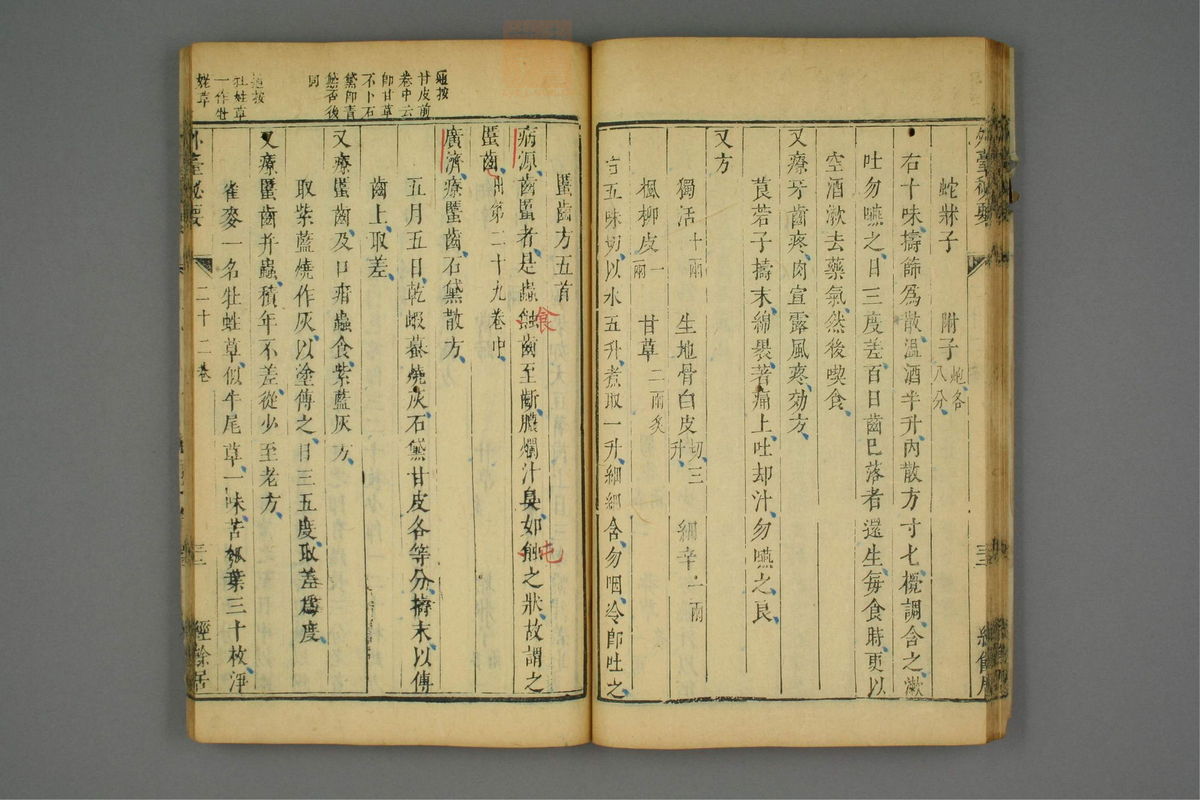 外臺秘要
三
經餘居
蛇牀子 附子炮各八分
右十味擣篩爲散溫酒半升內散方寸七攪調含之漱
吐勿嚥之日三度差百日齒已落者還生每食時更以
空酒漱去藥氣然後喫食
又療牙齒疼肉宣露風疼効方
莨菪子擣末綿褁著痛上吐却汁勿嚥之良
又方
獨活十兩 生地骨白皮切三升 細辛一兩
楓柳皮一兩 甘草二兩炙
右五味切以水五升煮取一升細細含勿咽冷卽吐之
䘌齒方五首
病源齒䘌者是蟲蝕齒至齗膿爛汁臭如蝕之狀故謂之
食
屯
䘌齒出第二十九卷中
廣濟療䘌齒石黛散方
五月五日乾蝦蟇燒灰石黛甘皮各等分擣末以傅
齒上取差
又療䘌齒及口瘡蟲食紫藍灰方
取紫藍燒作灰以塗傅之日三五度取差爲度
又療䘌齒并蟲積年不差從少至老方
雀麥一名牡蛙草似牛尾草一味苦瓠葉三十枚淨
按
甘皮前
卷中云
卽甘草
不卜石
黛卽青
黛否後
同
按
牡蛙草
一作牡
蛙草
外臺秘要
二十二卷
三
經餘居